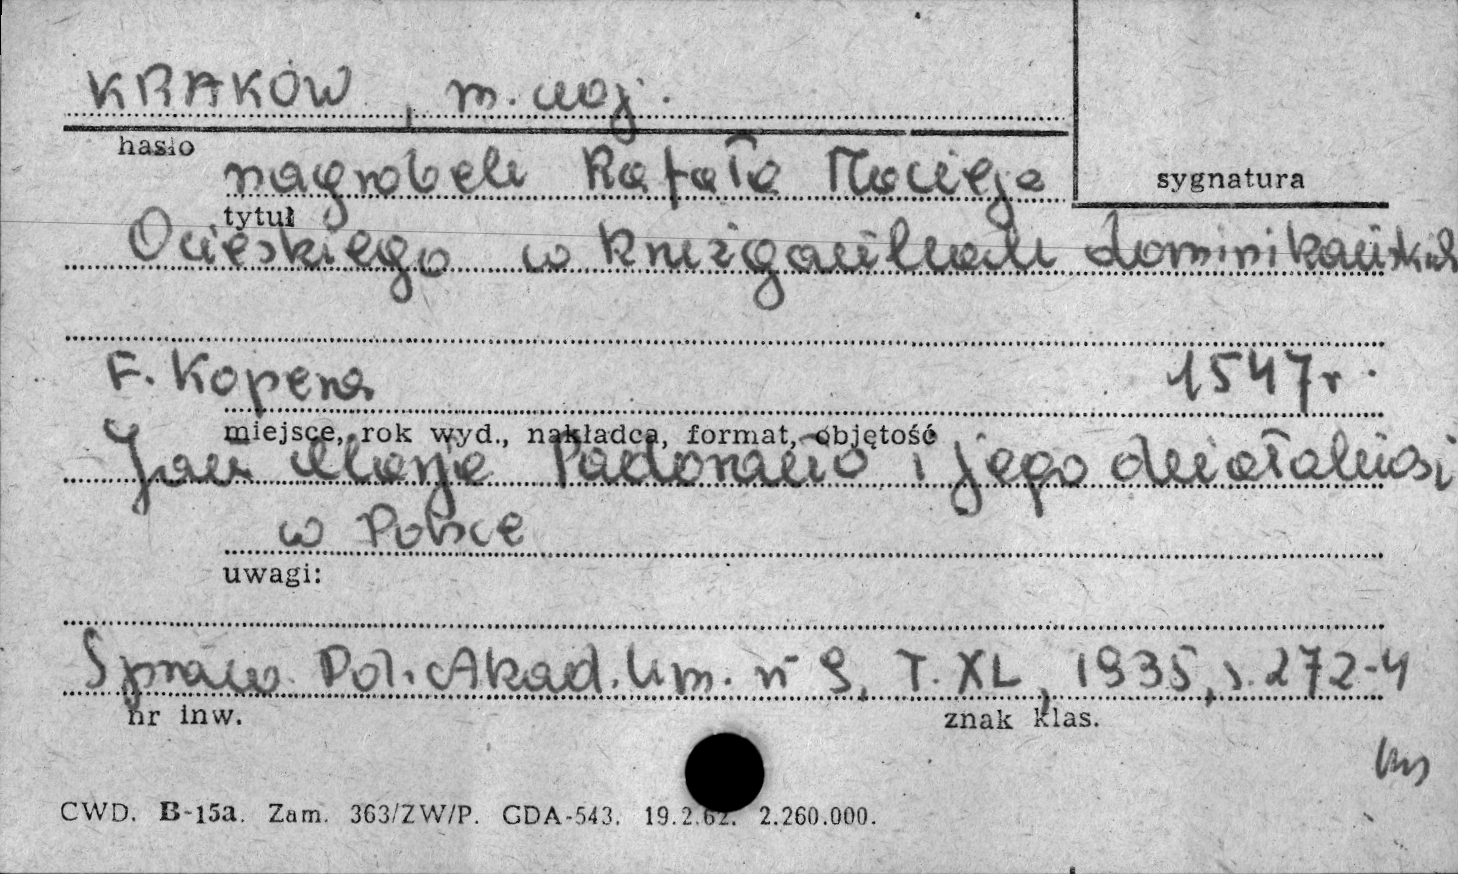 KRAKÓW, m. woj.
hasło
nagrobek Rafała Macieja
sygnatura
tytuł
Ocieskiego w krużgankach dominikańskich
F. Kopera 1547 r.
miejsce, rok wyd., nakładca, format, objętość
Jan Maria Padovano i jego działalność
w Polsce
uwagi:
Spraw. Pol. Akad. Um. nr 9, T. XL, 1935, s. 272-4
nr inw. znak klas.
CWD. B-15a. Zam. 363/ZW/P. GDA-543. 19.2.62. 2.260.000.